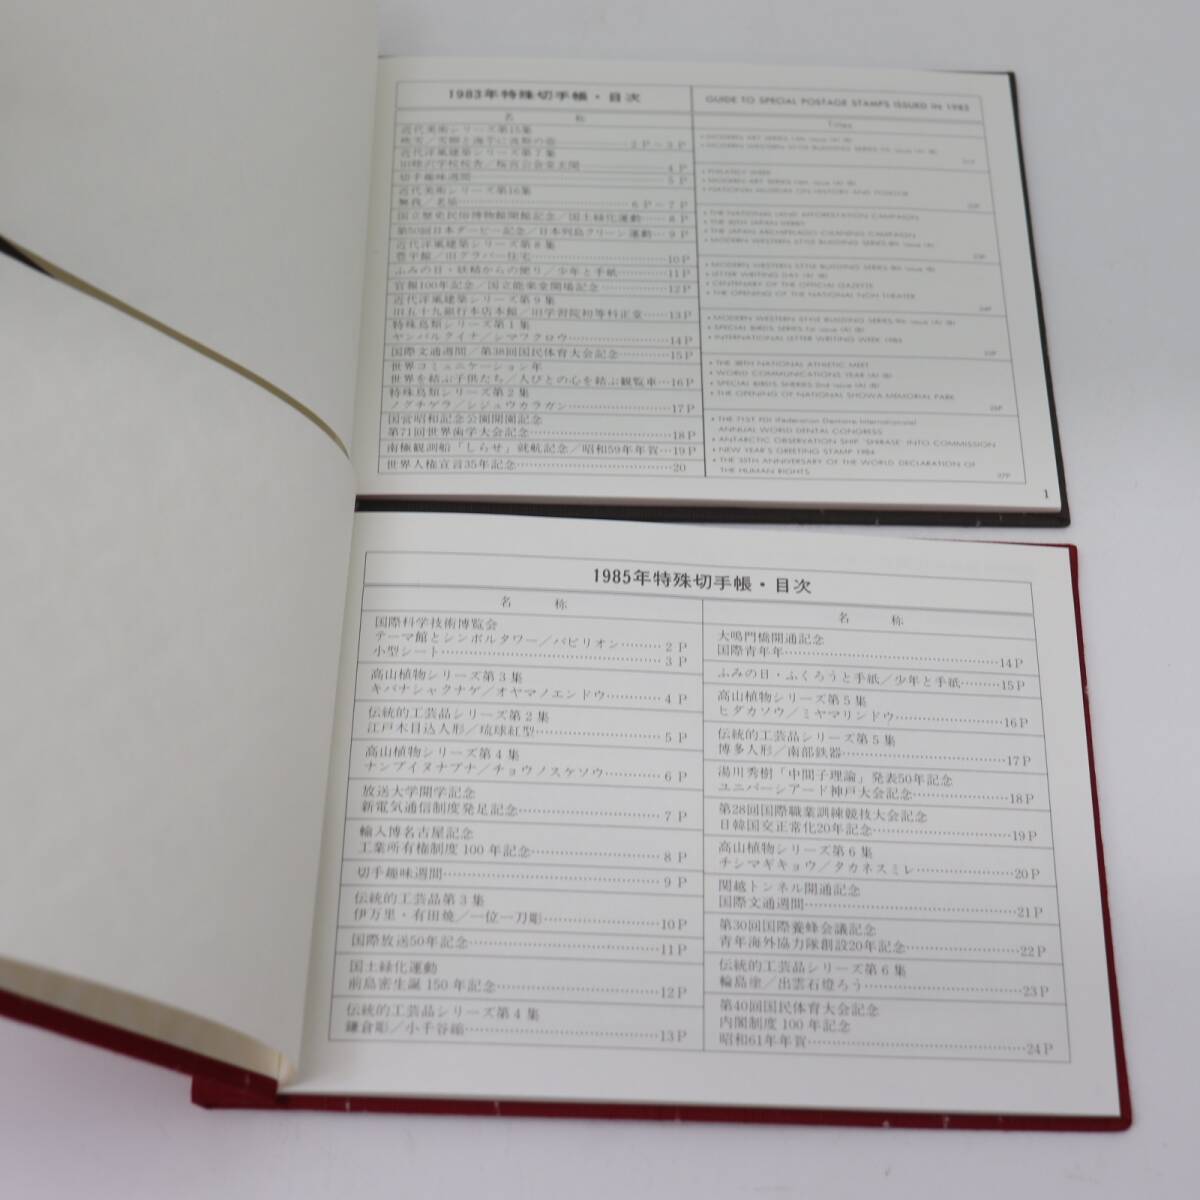 1983年特殊切手帳・目次
名　称
近代美術シリーズ第15集
2P～3P
近代洋風建築シリーズ第7集
旧睦沢学校校舎／桜宮公会堂玄関 4P
切手趣味週間 5P
近代美術シリーズ第16集
6P～7P
国立歴史民俗博物館開館記念／国土緑化運動 8P
第50回日本ダービー記念／日本列島クリーン運動 9P
近代洋風建築シリーズ第8集
豊平館／旧グラバー住宅 10P
ふみの日・妖精からの便り／少年と手紙 11P
官報100年記念／国立能楽堂開場記念 12P
近代洋風建築シリーズ第9集
旧五十九銀行本店本館／旧学習院初等科正堂 13P
特殊鳥類シリーズ第1集
ヤンバルクイナ／シマフクロウ 14P
国際文通週間／第38回国民体育大会記念 15P
世界コミュニケーション年
世界を結ぶ子供たち／人びとの心を結ぶ観覧車 16P
特殊鳥類シリーズ第2集
ノグチゲラ／シジュウカラガン 17P
国営昭和記念公園開園記念
第71回世界歯学大会記念 18P
南極観測船「しらせ」就航記念／昭和59年年賀 19P
世界人権宣言35年記念 20
GUIDE TO SPECIAL POSTAGE STAMPS ISSUED IN 1983
Titles
• MODERN ART SERIES 15th issue (A) (B)
• MODERN WESTERN STYLE BUILDING SERIES 7th issue (A) (B)
• PHILATELY WEEK
• MODERN ART SERIES 16th issue (A) (B)
• NATIONAL MUSEUM ON HISTORY AND FOLKLOR
• THE NATIONAL LAND AFFORESTATION CAMPAIGN
• THE 50TH JAPAN DERBY
• THE JAPAN ARCHIPELAGO CLEANING CAMPAIGN
• MODERN WESTERN STYLE BUILDING SERIES 8th issue (A)
• MODERN WESTERN STYLE BUILDING SERIES 8th issue (B)
• LETTER WRITING DAY (A) (B)
• CENTENARY OF THE OFFICIAL GAZETTE
• THE OPENING OF THE NATIONAL NOH THEATER
• MODERN WESTERN STYLE BUILDING SERIES 9th issue (A) (B)
• SPECIAL BIRDS SERIES 1st issue (A) (B)
• INTERNATIONAL LETTER WRITING WEEK 1983
• THE 38TH NATIONAL ATHLETIC MEET
• WORLD COMMUNICATIONS YEAR (A) (B)
• SPECIAL BIRDS SERIES 2nd issue (A) (B)
• THE OPENING OF NATIONAL SHOWA MEMORIAL PARK
26P
• THE 71ST FDI (Federation Dentaire Internationale)
ANNUAL WORLD DENTAL CONGRESS
• ANTARCTIC OBSERVATION SHIP "SHIRASE" INTO COMMISSION
• NEW YEAR'S GREETING STAMP 1984
• THE 35TH ANNIVERSARY OF THE WORLD DECLARATION OF
THE HUMAN RIGHTS
27P
1
1985年特殊切手帳・目次
名　称
国際科学技術博覧会
テーマ館とシンボルタワー／パビリオン 2P
小型シート 3P
高山植物シリーズ第3集
キバナシャクナゲ／オヤマノエンドウ 4P
伝統的工芸品シリーズ第2集
江戸木目込人形／琉球紅型 5P
高山植物シリーズ第4集
ナンブイヌナズナ／チョウノスケソウ 6P
放送大学開学記念
新電気通信制度発足記念 7P
輸入博名古屋記念
工業所有権制度100年記念 8P
切手趣味週間 9P
伝統的工芸品第3集
伊万里・有田焼／一位一刀彫 10P
国際放送50年記念 11P
国土緑化運動
前島密生誕150年記念 12P
伝統的工芸品シリーズ第4集
鎌倉彫／小千谷縮 13P
名　称
大鳴門橋開通記念
国際青年年 14P
ふみの日・ふくろうと手紙／少年と手紙 15P
高山植物シリーズ第5集
ヒダカソウ／ミヤマリンドウ 16P
伝統的工芸品シリーズ第5集
博多人形／南部鉄器 17P
湯川秀樹「中間子理論」発表50年記念
ユニバーシアード神戸大会記念 18P
第28回国際職業訓練競技大会記念
日韓国交正常化20年記念 19P
高山植物シリーズ第6集
チシマギキョウ／タカネスミレ 20P
関越トンネル開通記念
国際文通週間 21P
第30回国際養蜂会議記念
青年海外協力隊創設20年記念 22P
伝統的工芸品シリーズ第6集
輪島塗／出雲石燈ろう 23P
第40回国民体育大会記念
内閣制度100年記念
昭和61年年賀 24P